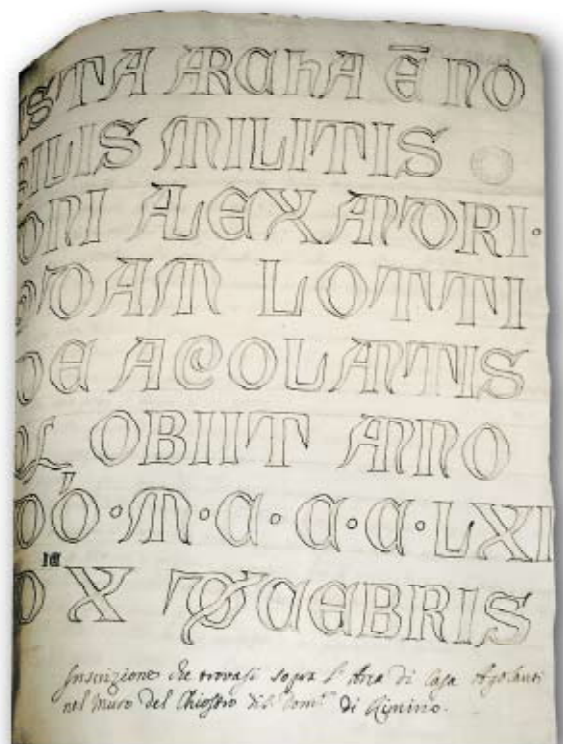 ISTA ARChA Ē NO
BILIS MILITIS
DNI ALEXANDRI •
QDAM LOTTI
DE AGOLANTIS
OBIIT ANNO
DÕ • M • C • C • C • LXI
X CEBRIS
Inscrizione che trovasi sopra l'Arca di Casa Agolanti
nel muro del Chiostro di S. Domco di Rimino.